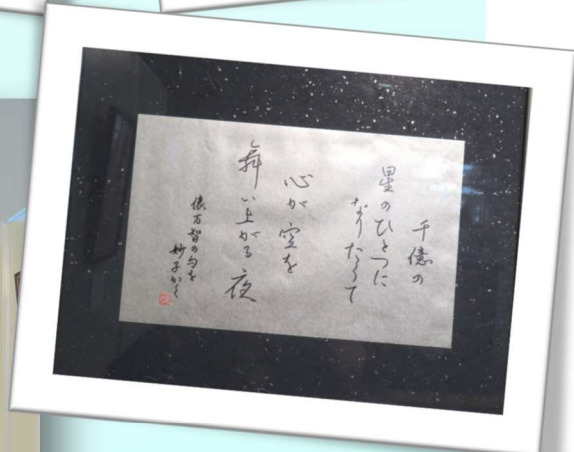 千億の
星のひとつに
なりたくて
心が空を
舞い上がる夜
俵万智の句を
妙子かく